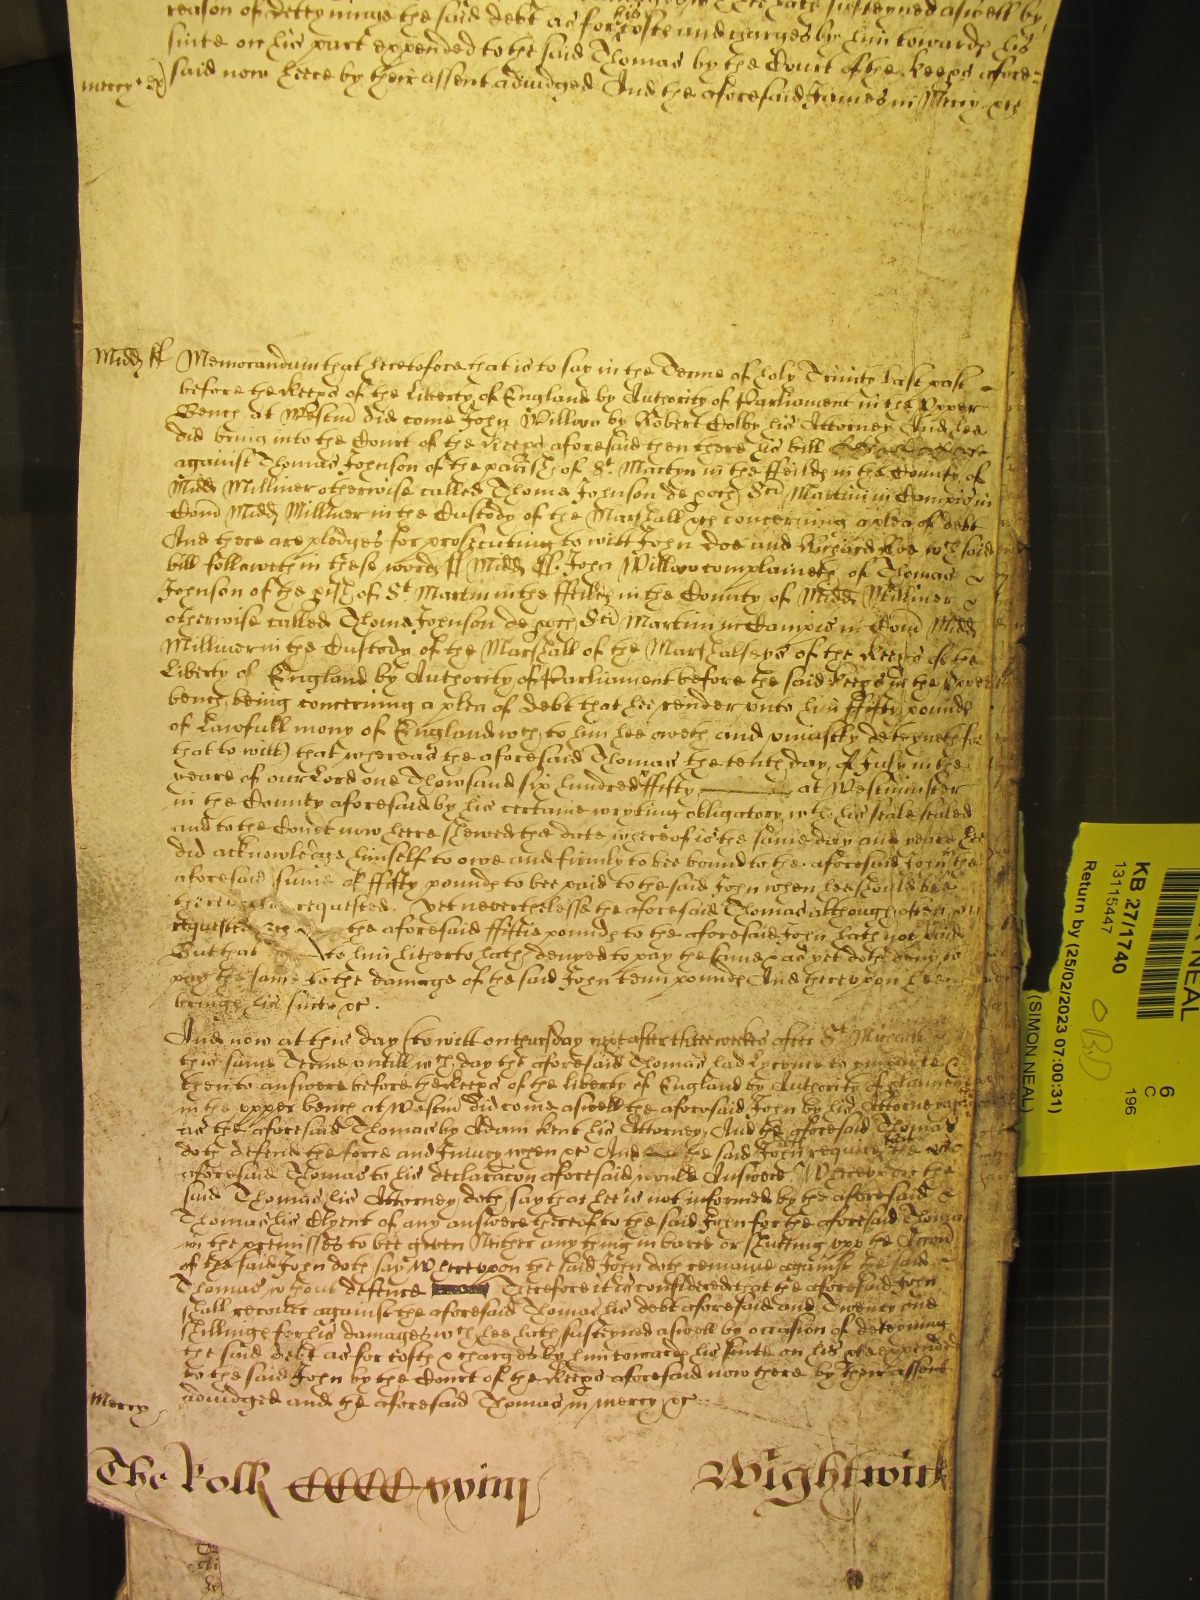 reason of deteyninge the said debt as for his costs and charges by him towards his
suite on his part expended to the said Thomas by the Court of the Keeps afore-
said now heere by their assent adiudged And the aforesaid James in Mercy &c
mercy
Midds ss Memorandum that heretofore that is to say in the Terme of holy Trinity last past
before the Keeps of the Liberty of England by Authority of Parliament in the Upper
Bench at Westm did come John Willow by Robert Colby his Attorney And hee
did bring into the Court of the Keeps aforesaid then there his bill
against Thomas Johnson of the parish of St. Martyn in the ffeilds in the County of
Midds Milliner otherwise called Thoma Johnson de poch Sci Martini in Campis in
Com Midds Milliner in the Custody of the Marshall &c concerning a plea of debt
And there are pledges for prosecuting to witt John Doe and Richard Roe wch said
bill followeth in these words ss Midds ss. John Willow complaineth of Thomas
Johnson of the pish of St Martin in the ffeilds in the County of Midds Milliner
otherwise called Thoma Johnson de poch Sci Martini in Campis in Com Midds
Milliner in the Custody of the Marshall of the Marshalseys of the Keeps of the
Liberty of England by Authority of Parliament before the said Keeps in the Upper
bench being concerning a plea of debt that hee render unto him ffifty pounds
of lawfull mony of England wch to him hee oweth and uniustly deteyneth for
that to witt) that whereas the aforesaid Thomas the tenth day of July in the
yeare of our Lord one Thowsand six hundred ffifty at Westminster
in the County aforesaid by his certaine wryting obligatory wth his seale sealed
and to the Court now heere shewed the date whereof is the same day and yeare
did acknowledge himself to owe and firmly to bee bound to the aforesaid John the
aforesaid sume of ffifty pounds to bee paid to the said John when hee should bee
thereunto requested. Yet neverthelesse the aforesaid Thomas although often
requested &c the aforesaid ffiftie pounds to the aforesaid John hath not paid
But that to him hitherto hath denyed to pay the same & as yet doth deny to
pay the same to the damage of the said John tenn pounds And thereupon hee
bringe his suite &c.
And now at this day (to witt on thursday next after three weekes after St Michaell
this same Terme untill wch day the aforesaid Thomas had lycence to imparle
then to answere before the Keeps of the liberty of England by Authority of plament
in the upper bench at Westm did come aswell the aforesaid John by his Attorney
as the aforesaid Thomas by Adam Kent his Attorney And the aforesaid Thomas
doth defend the force and Iniury when &c And the said John requires that the
aforesaid Thomas to his declaracon aforesaid would Answere Whereupon the
said Thomas his Attorney doth say that hee is not informed by the aforesaid
Thomas his Clyent of any answere thereof to the said John for the aforesaid Thomas
in the premisses to bee given Neither any thing in barre or shutting upp the Accon
of the said John doth say Whereupon the said John doth remaine against the said
Thomas wthout defence Therefore it is considered that the aforesaid John
shall recover against the aforesaid Thomas his debt aforesaid and Twenty one
shillings for his damages wch hee hath susteyned aswell by occasion of deteyning
the said debt as for costs & charges by him towards his suite on his pte expended
to the said John by the Court of the Keeps aforesaid now there by their assent
adiudged and the aforesaid Thomas in mercy &c
Mercy
The Rolk CCCC xviiij Wightwick
NEAL
KB 27/1740
13115447
Return by (25/02/2023 07:00:31)
(SIMON NEAL)
6
C
196